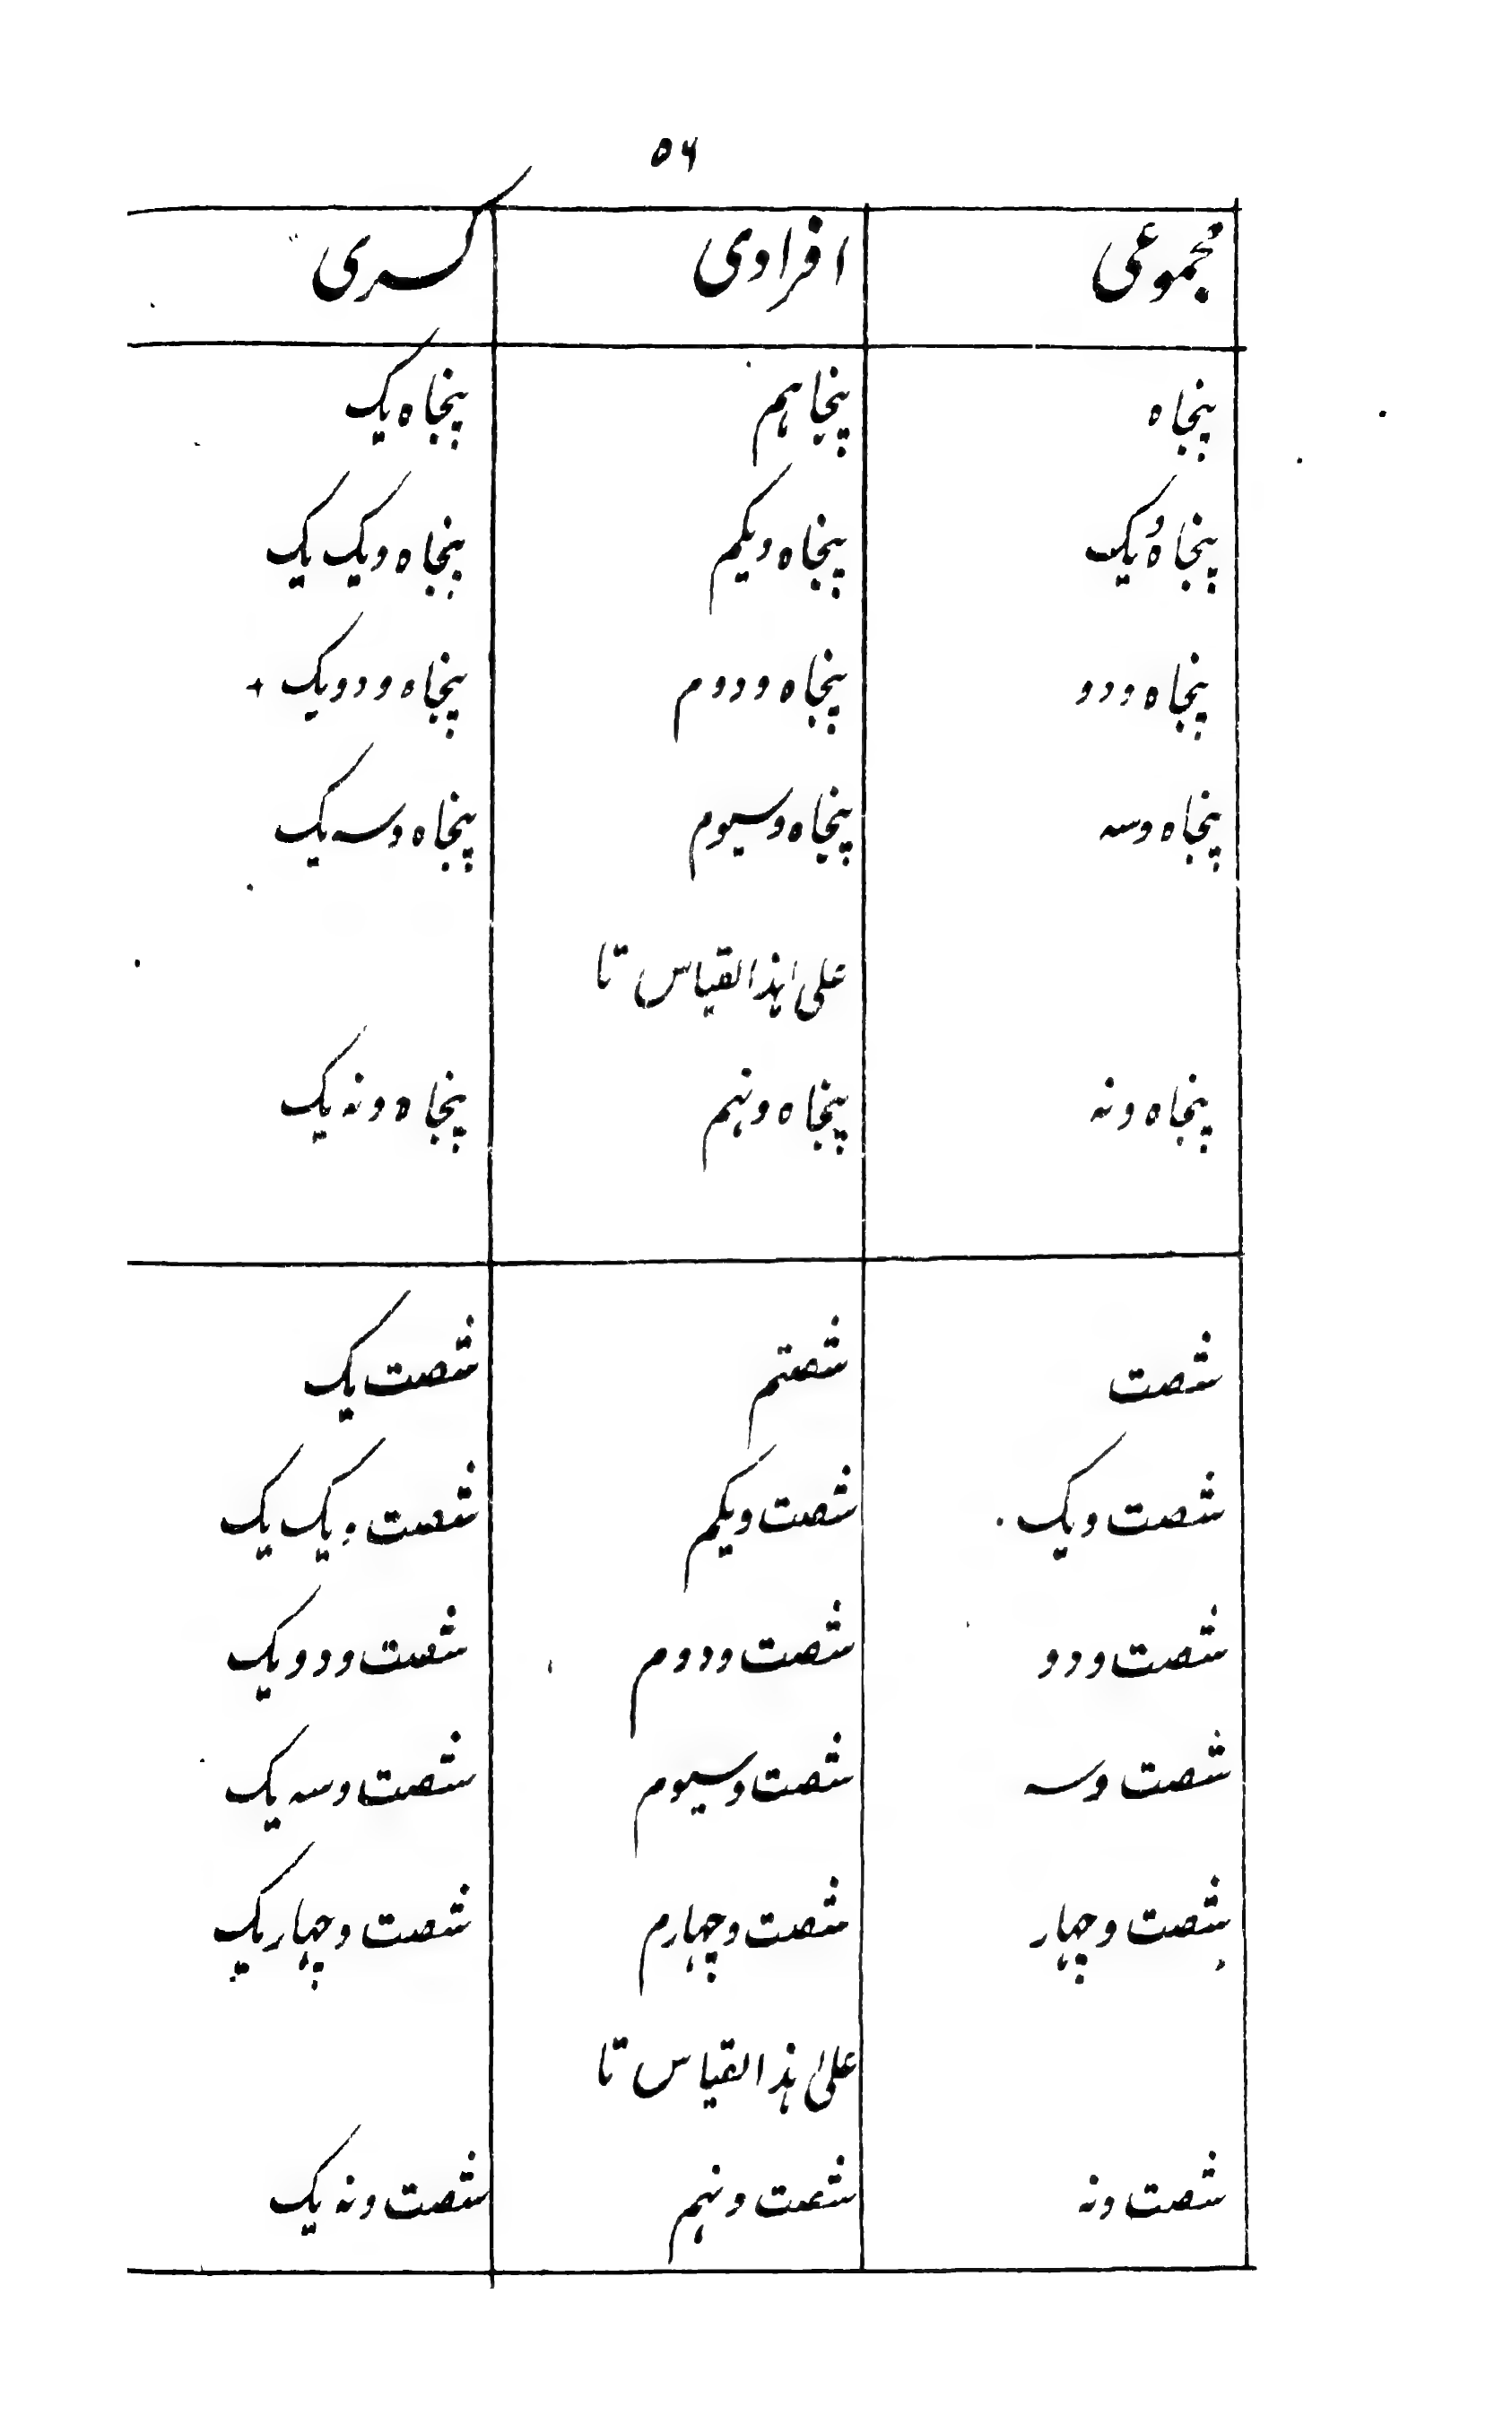 ۵۶
مجموعی افرادی کسری
پنجاه پنجاهم پنجاه یک
پنجاهُ یک پنجاه ویکم پنجاه ویک یک
پنجاه ودو پنجاه ودوم پنجاه ودویک +
پنجاه وسه پنجاه وسیوم پنجاه وسه یک
علی ہذا القیاس تا
پنجاه ونه پنجاه ونہم پنجاه ونه یک
شصت شصتم شصت یک
شصت ویک شصت ویکم شصت ویک یک
شصت ودو شصت ودوم شصت ودویک
شصت وسه شصت وسیوم شصت وسه یک
شصت وچہار شصت وچہارم شصت وچہاریک
علی ہذا القیاس تا
شصت ونه شصت ونہم شصت ونه یک